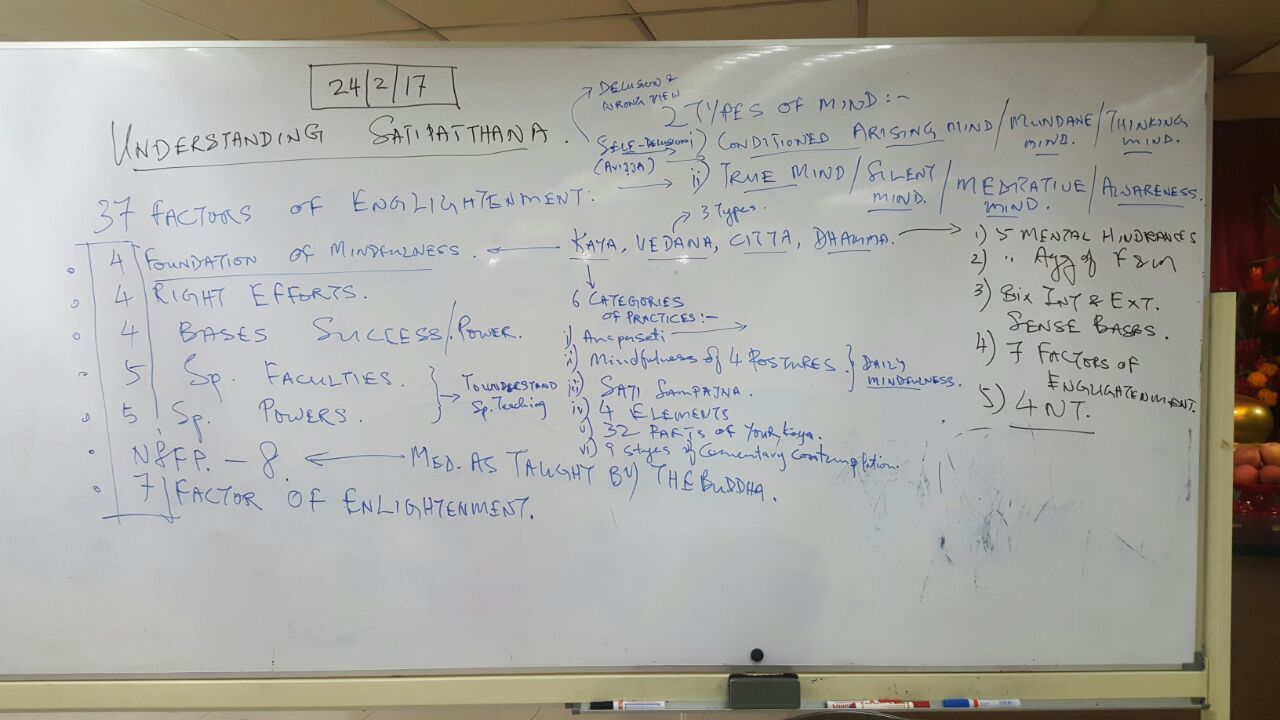 24/2/17
UNDERSTANDING SATIPATTHANA.
DELUSION &
WRONG VIEW
2 TYPES OF MIND:-
SELF-DELUSION
(AVIJJA)
i) CONDITIONED ARISING MIND/MUNDANE MIND./THINKING MIND.
ii) TRUE MIND/SILENT MIND./MEDITATIVE MIND./AWARENESS.
37 FACTORS OF ENGLIGHTENMENT:
4 FOUNDATION OF MINDFULNESS.
4 RIGHT EFFORTS.
4 BASES SUCCESS/POWER.
5 Sp. FACULTIES.
5 Sp. POWERS.
TO UNDERSTAND
Sp. Teaching
N8FP. – 8. MED. AS TAUGHT BY THE BUDDHA.
7 FACTOR OF ENLIGHTENMENT.
3 Types.
KAYA, VEDANA, CITTA, DHAMMA.
6 CATEGORIES
OF PRACTICES:-
i) Anapanasati
ii) Mindfulness of 4 POSTURES.
iii) SATI SAMPAJNA.
DAILY
MINDFULNESS.
iv) 4 ELEMENTS
v) 32 PARTS OF Your Kaya.
vi) 9 stages of Cementary Contemplation.
1) 5 MENTAL HINDRANCES
2) " Agg of F & M
3) Six INT & EXT.
SENSE BASES.
4) 7 FACTORS OF
ENGLIGHTENMENT.
5) 4 NT.